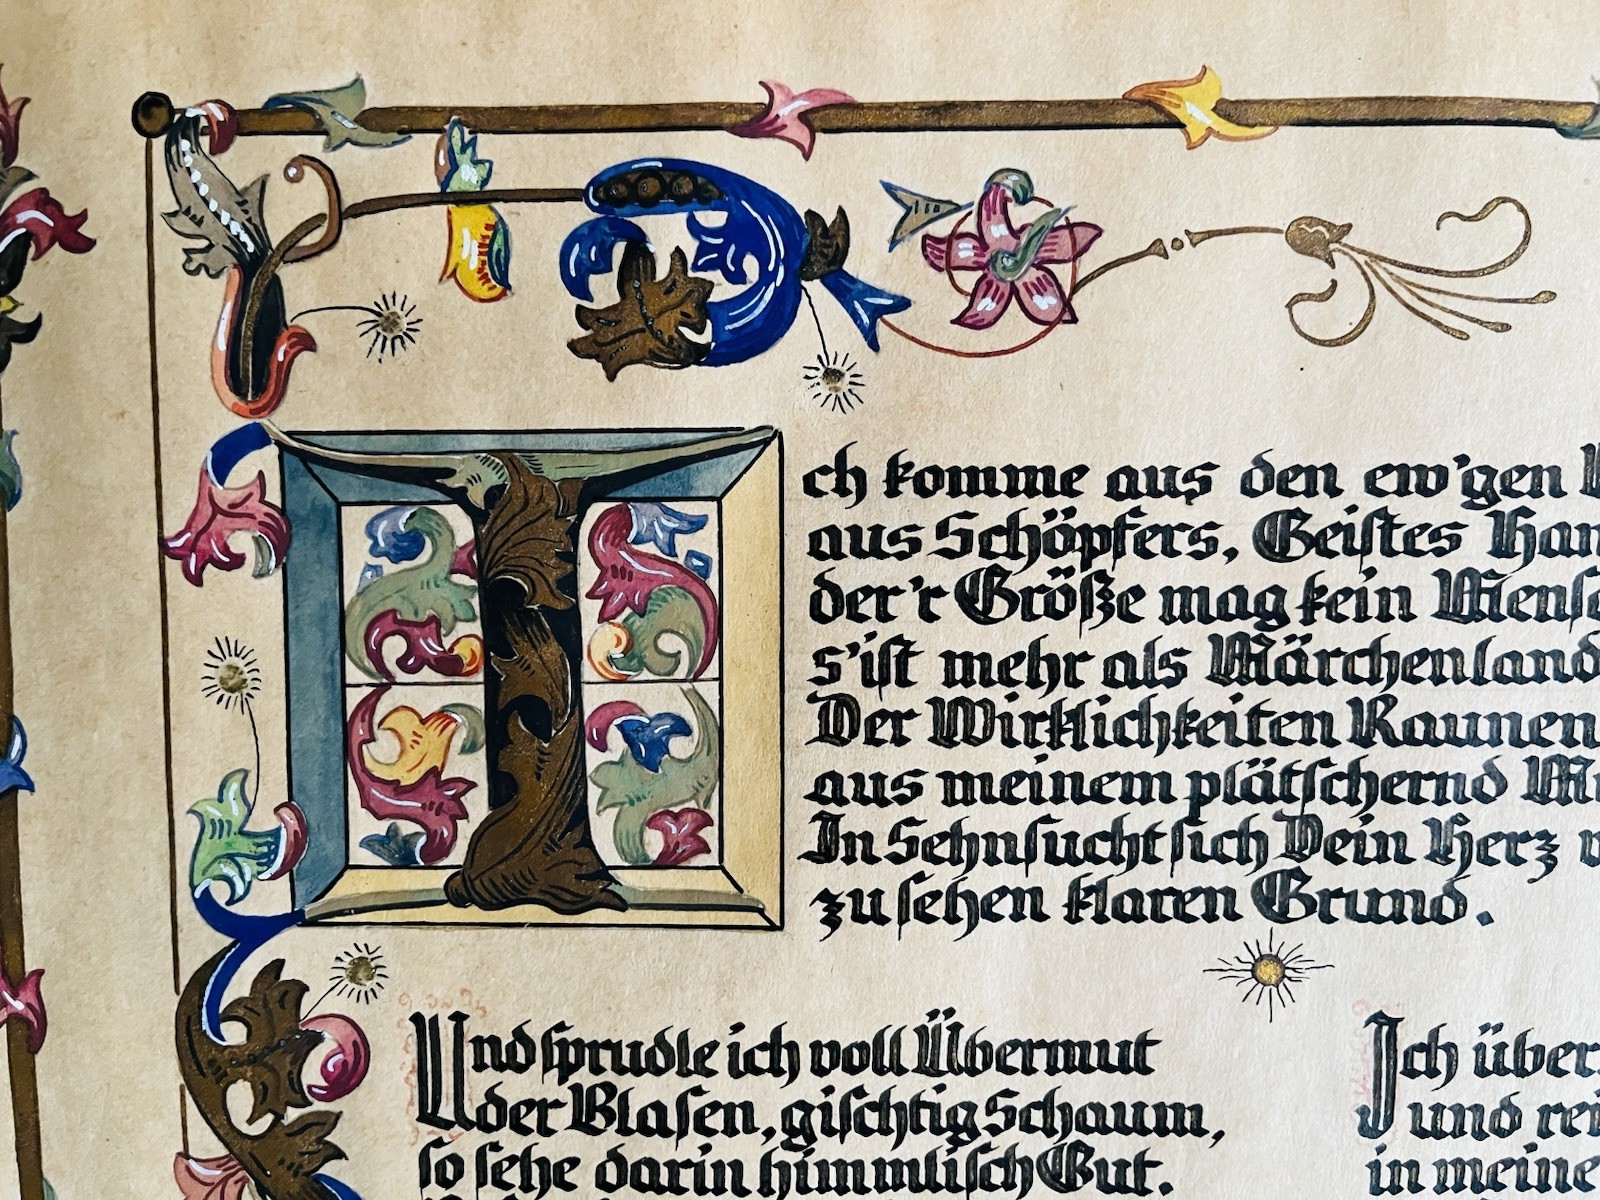 Ich komme aus den ew'gen
aus Schöpfers, Geistes
der'r Größe mag kein
s'ist mehr als Märchenland
Der Wirklichkeiten Raunen
aus meinem plätschernd
In Sehnsucht sich Dein Herz
zu sehen klaren Grund.
Und sprudle ich voll Übermut
der Blasen, gischtig Schaum,
so sehe darin himmlisch Gut.
Ich
und
in meine